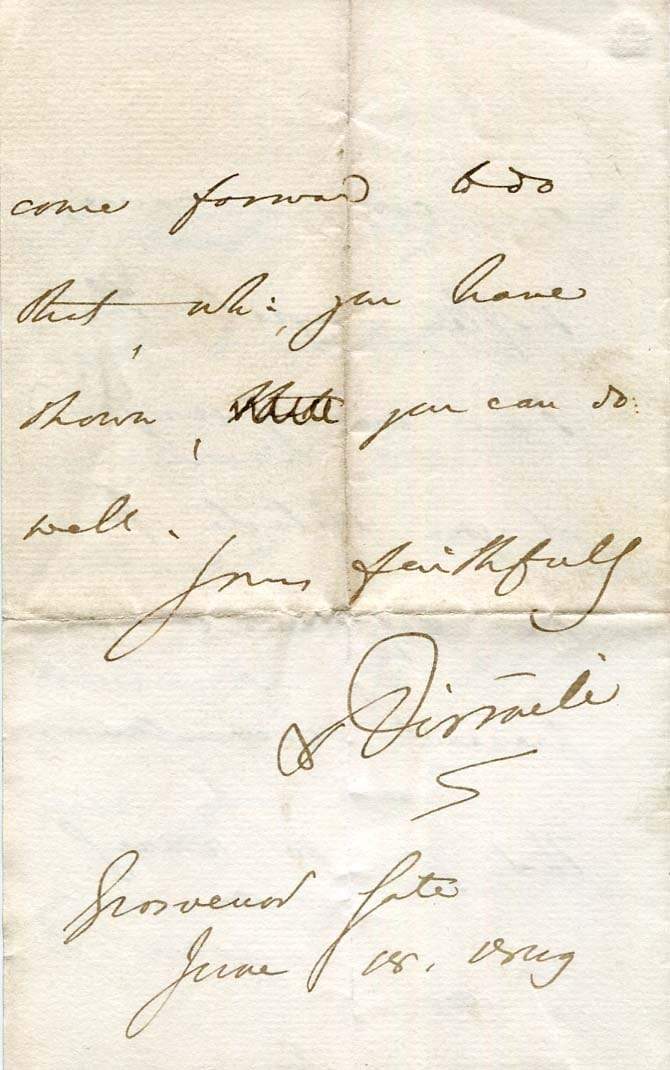 come forward to do
that, whi: you have
shown, you can do
well.
Yours faithfully
Disraeli
Grosvenor Gate
June 18. 1849